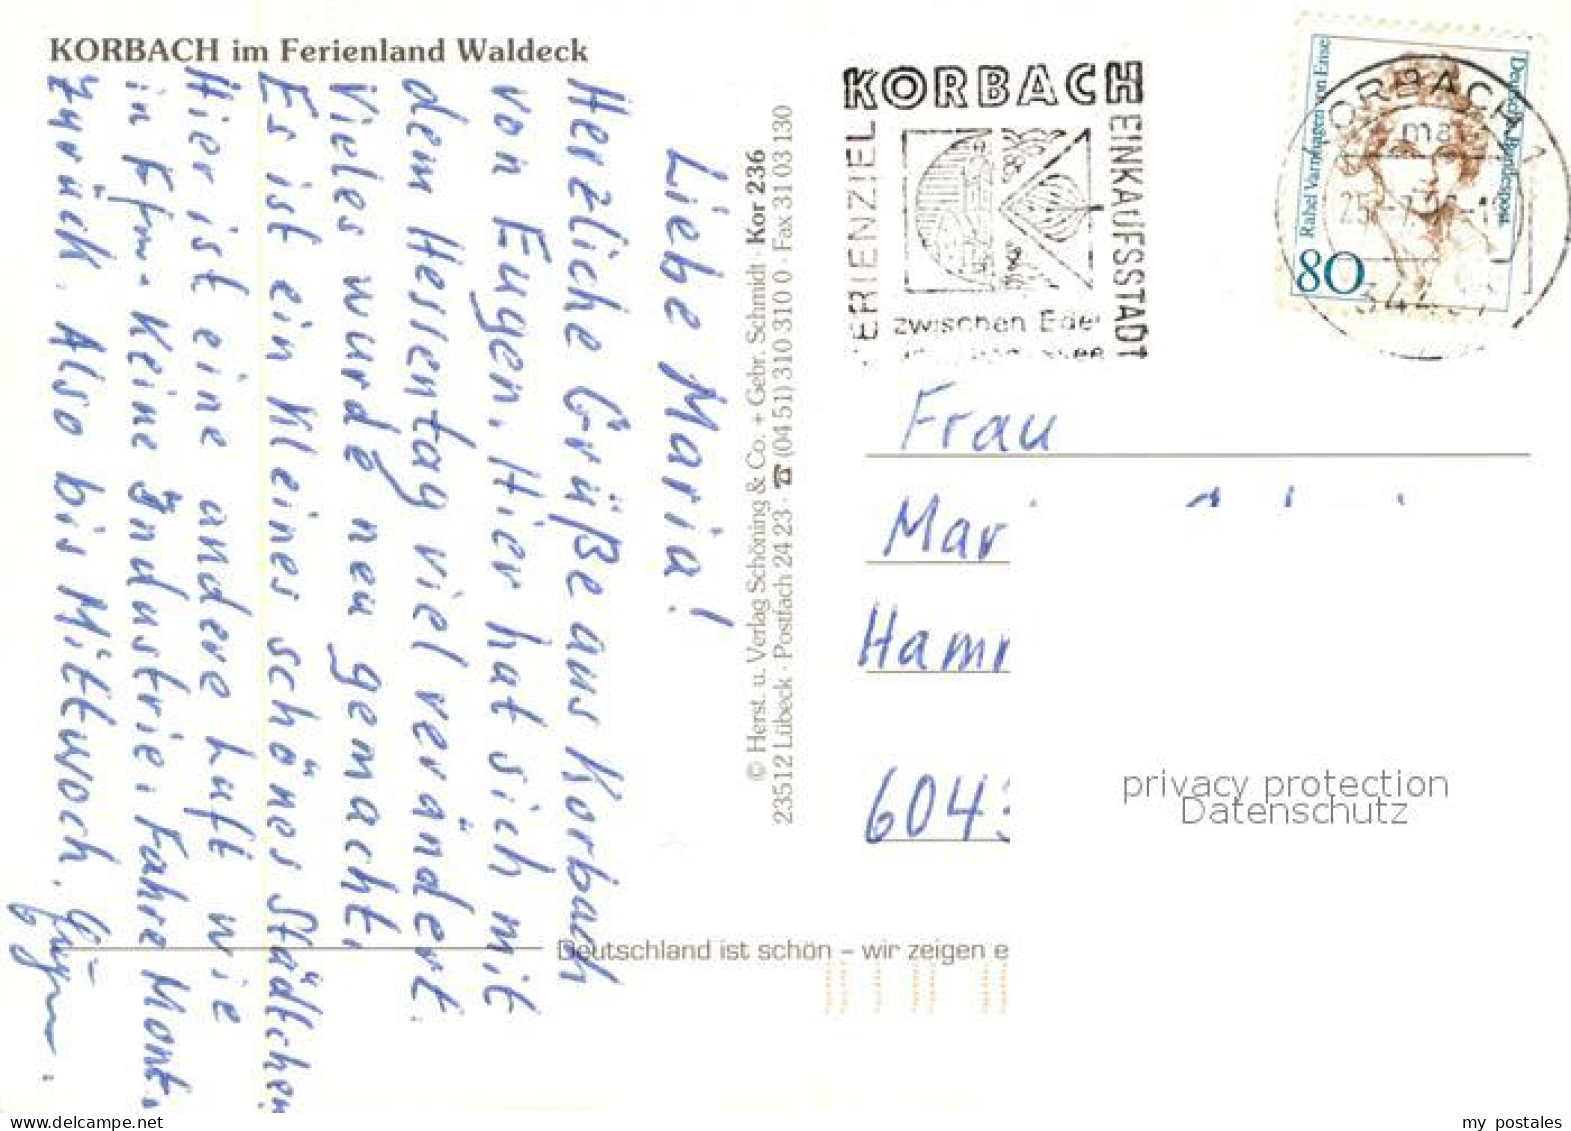 KORBACH im Ferienland Waldeck
Liebe Maria!
Herzliche Grüße aus Korbach
von Eugen. Hier hat sich mit
dem Hessentag viel verändert.
Vieles wurde neu gemacht.
Es ist ein kleines schönes Städtchen
Hier ist eine andere Luft wie
in Ffm. Keine Industrie. Fahre Mont.
zurück. Also bis Mittwoch.
© Herst. u. Verlag Schöning & Co. + Gebr. Schmidt · Kor 236
23512 Lübeck · Postfach 24 23 · ☎ (04 51) 310 310 0 · Fax 31 03 130
Deutschland ist schön – wir zeigen e
KORBACH
FERIENZIEL
EINKAUFSSTADT
zwischen Eder
KORBACH 1
Deutsche Bundespost
Rahel Varnhagen von Ense
80
Frau
Mar
Ham
604
privacy protection
Datenschutz
delcampe.net
my_postales